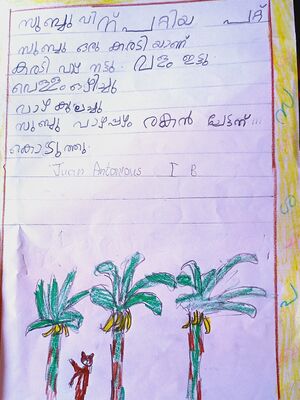 സുബ്ബു വിന് പറ്റിയ പറ്റ്
സുബ്ബു ഒരു കരടി യാണ്
കരടി വാഴ നട്ടു. വളം ഇട്ടു.
വെള്ളം ഒഴിച്ചു
വാഴ കുലച്ചു
സുബ്ബു പഴം രങ്കൻ ചേട്ടന് ...
കൊടുത്തു.
Juan Antonious I B